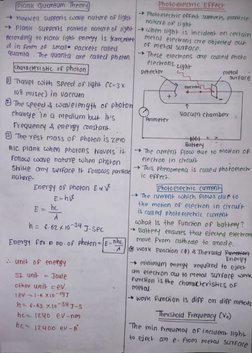 Planck Quantum Theory
→ Maxwell supports wave nature of light
→ Planck supports particle nature of light
According to Planck light energy is
in form of small packets called
quanta. The quanta are called photon
Characteristic of photon
1) Travel with speed of light (c=3×
10⁸ m/sec) in vacuum
2) The speed & wavelength of photon
change in a medium but its
frequency & energy constant.
3) The rest mass of photon is zero
Planck when photons travel it
follow wave nature when photon
strike any surface it follows particle
nature.
Energy of photon E ∝ ν
E = hν
E = hc/λ
h = 6.62 × 10⁻³⁴ J-sec
Energy for n no of photon = E = nhc/λ
∴ unit of energy
SI unit = Joule
other unit = eV
1eV = 1.6 × 10⁻¹⁹J
h = 6.62 × 10⁻³⁴ J-s
hc = 1240 eV-nm
hc = 12400 eV-A°
Photo-electric Effect
→ Photoelectric effect supports particle
nature of light
→ When light is incident on certain
metal electrons are ejected out
of metal surface.
→ These electrons are called photo
electrons
Light
Detector
metal
surface
electrons
vacuum chamber
Ammeter
Battery
→ The current flow due to motion of
electron in circuit
→ This phenomena is called photoelect-
ric effect.
Photoelectric current
→ The current which flows due to
the motion of electron in circuit
is called photoelectric current
what is the function of battery?
→ Battery ensures that ejected electrons
move from cathode to anode.
Work function (Φ) & Threshold Energy
→ minimum energy required to eject
an electron out to metal surface work
function is the characteristics of
metal
→ work function is diff on diff metals
Threshold Frequency (ν₀)
The min frequency of incident light
to eject an e⁻ from metal surface